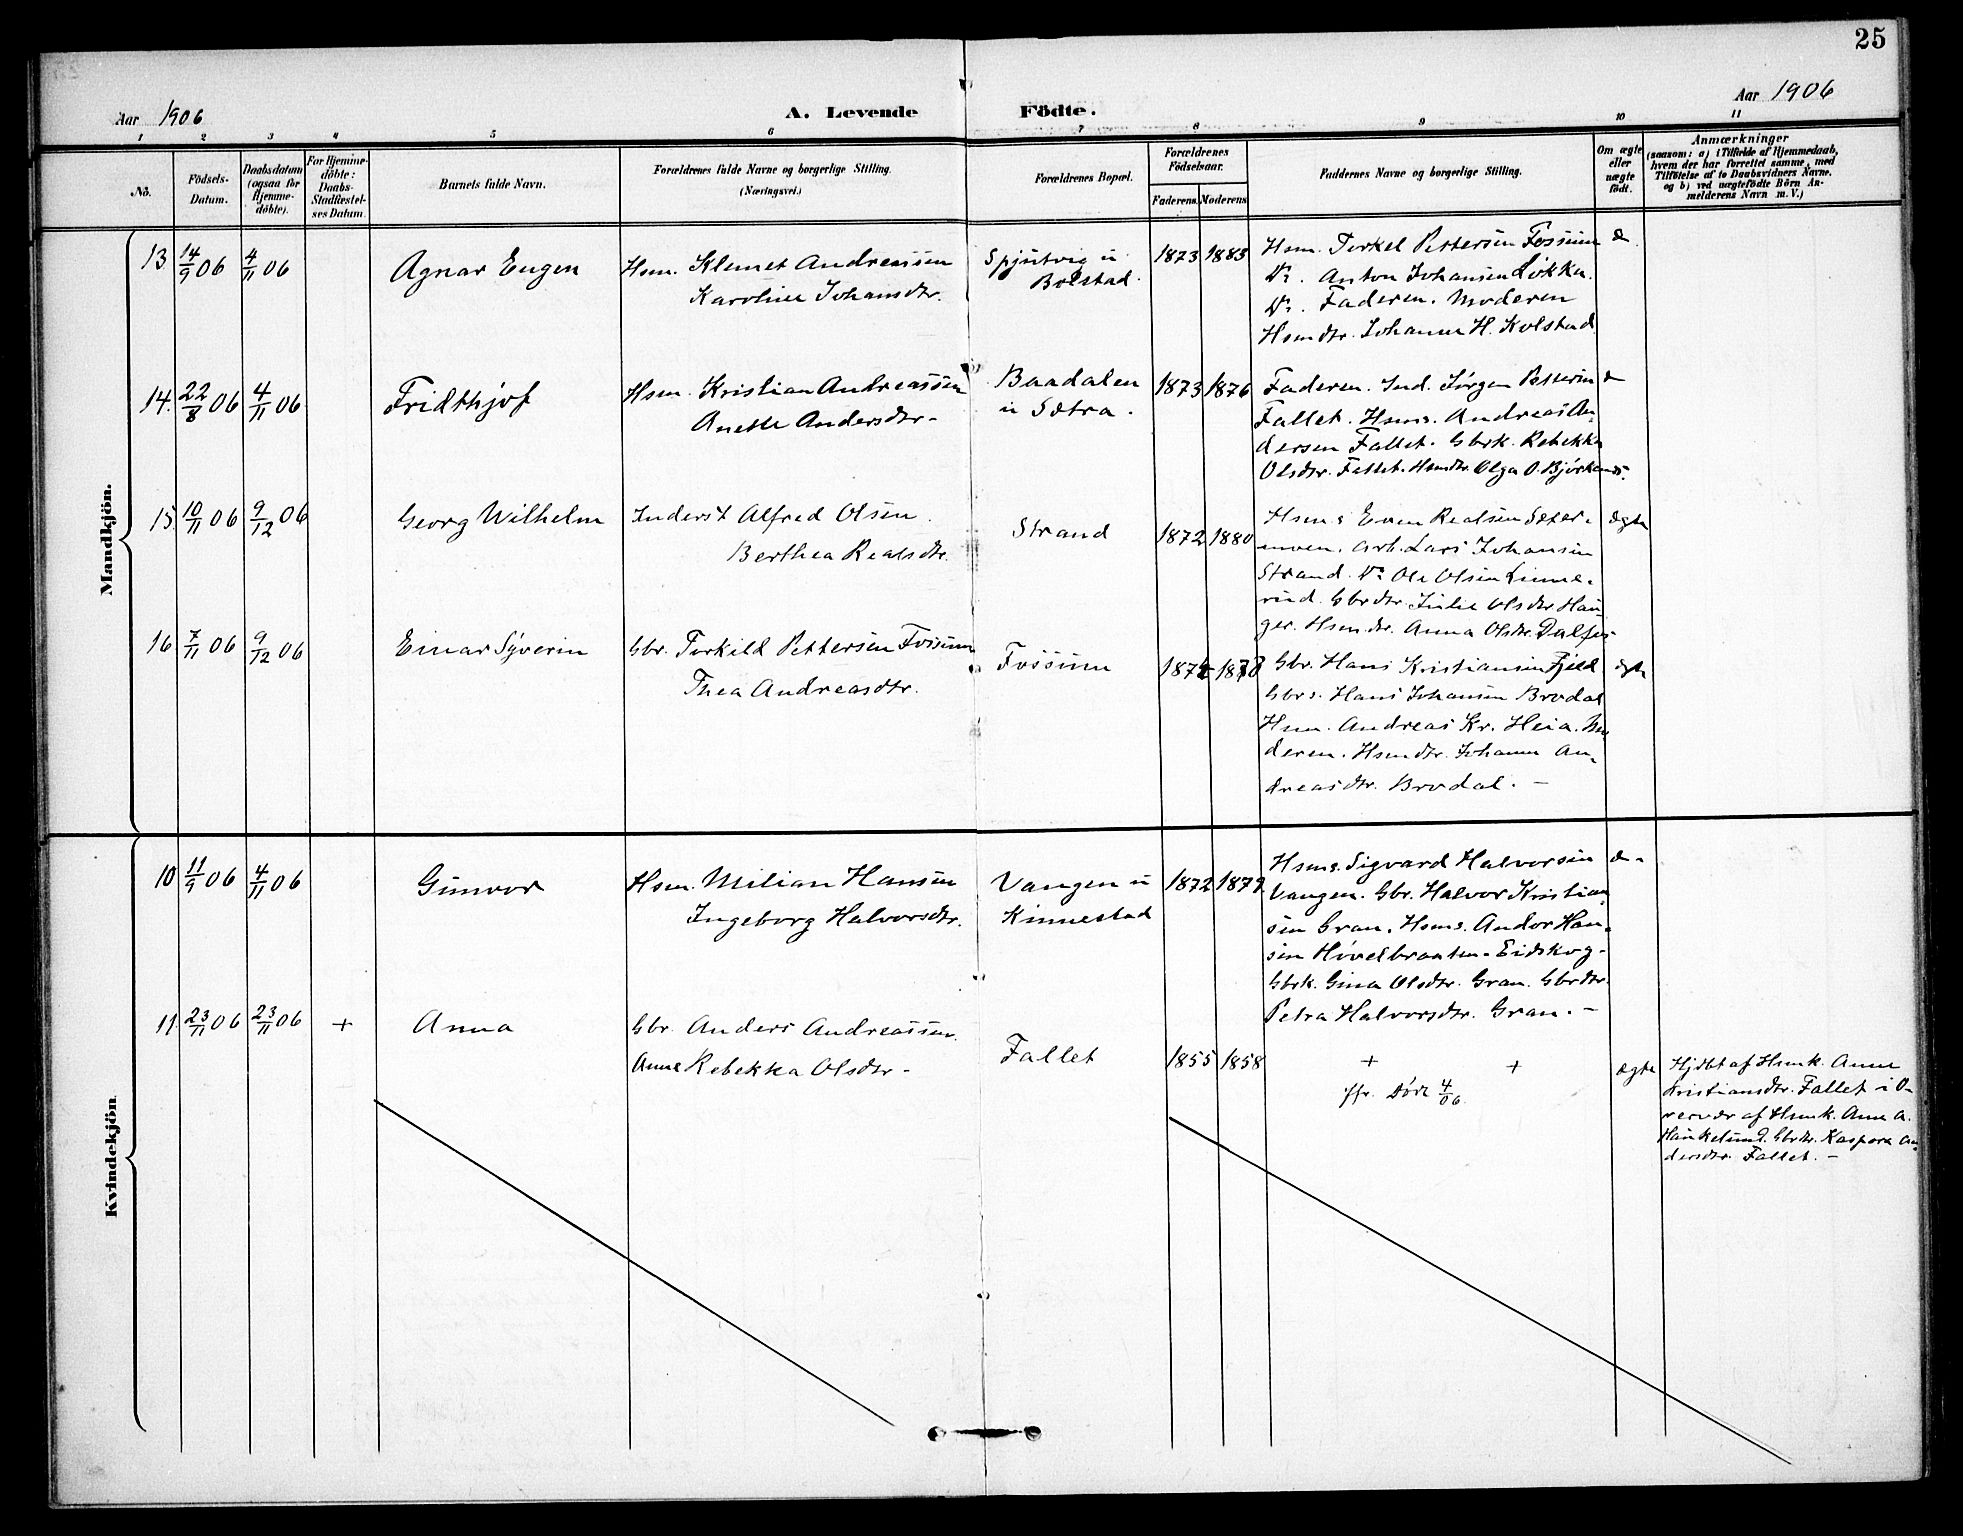 25
Aar 1906
A. Levende Födte.
Aar 1906
1 2 3 4 5 6 7 8 9 10 11
No.
Födsels-Datum.
Daabsdatum (ogsaa for Hjemme-döbte).
For Hjemme-döbte: Daabs-Stadfæstel-ses Datum.
Barnets fulde Navn.
Forældrenes fulde Navne og borgerlige Stilling. (Næringsvei.)
Forældrenes Bopæl.
Forældrenes Födselsaar.
Faderens. Moderens
Faddernes Navne og borgerlige Stilling.
Om ægte eller uægte födt.
Anmærkninger
(saasom: a) i Tilfælde af Hjemmedaab,
hvem der har forrettet samme, med
Tilföielse af to Daabsvidners Navne,
og b) ved uægtefödte Börn An-
melderens Navn m. V.)
Mandkjön.
13 14/9 06 4/11 06 Agnar Eugen Hsm. Klemet Andreassen
Karoline Johansdtr.
Spjutvig u
Bolstad.
1873 1883
Hsm. Terkel Pettersen Fossum
Do. Anton Johansen Løkka.
Do. Faderen. Moderen
Hsmdtr. Johanne H. Kolstad
14. 22/8 06 4/11 06 Fridthjof Hsm. Kristian Andreassen
Anette Andersdtr.
Baadalen
u Sætra.
1873 1876
Faderen. Ind. Jørgen Petterin
Fallet. Hsms. Andreas An-
dersen Fallet. Gbrk. Rebekka
Olsdtr. Fallet. Hsmdtr. Olga O.
15 10/11 06 9/12 06 Georg Wilhelm Inderst Alfred Olsen.
Berthea Realsdtr.
Strand
1872 1880
Hsms Even Realsen Sæter-
moen. Arb. Lars Johansen
Strand. Do Ole Olsen Linne-
rud. Gbrdtr. Julie Olsdtr Hau-
ger. Hsmdtr. Anna Olsdtr.
ægte
16 7/11 06 9/12 06 Einar Syverin Gbr. Torkild Pettersen Fossum
Thea Andreasdtr.
Fossum
Gbr. Hans Kristiansen Fjeld
Gbrs. Hans Johansen Brodal
Hsm. Andreas Kr. Heia. Mo-
deren. Hsmdtr. Johanne An-
dreasdtr. Brodal. —
ægte
Kvindekjön
10 11/9 06 4/11 06 Gunvor Hsm. Milian Hansen
Ingeborg Halvorsdtr.
Vangen u
Kinnestad
1872 1879
Hsms. Sigvard Halvorsen
Vangen. Gbr. Halvor Kristian-
sen Gran. Hsms. Andor Han-
sen Høvelbraaten. Eidskog.
Gbrk. Gina Olsdtr. Gran. Gbrdtr.
Petra Halvorsdtr. Gran. —
11 23/11 06 23/11 06 + Anna Gbr. Anders Andreassen.
Anne Rebekka Olsdtr.
Fallet
1855 1858
+ +
Døde 4/06
ægte
Hjdbt af Hsmk. Anne
Kristiansdtr. Fallet i O-
vervær af Hsmk. Anne A.
Haukelund. Gbrdtr. Kaspara An-
dersdtr. Fallet. —